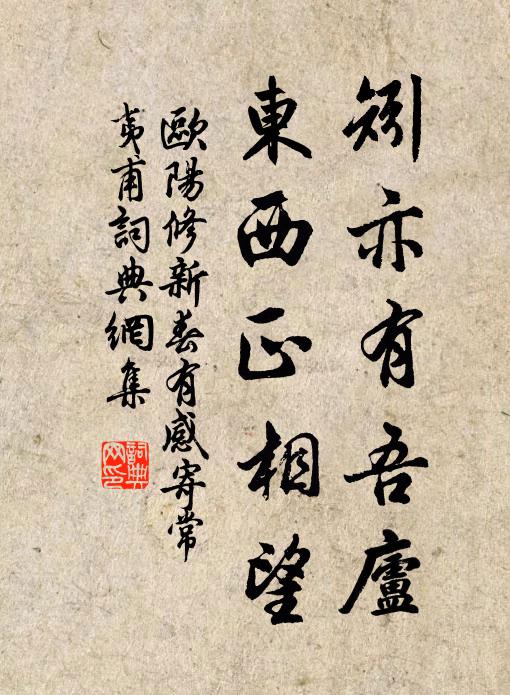 矧亦有吾廬
東西正相望
歐陽修新春有感寄常
夷甫詞典網集
詞典網印